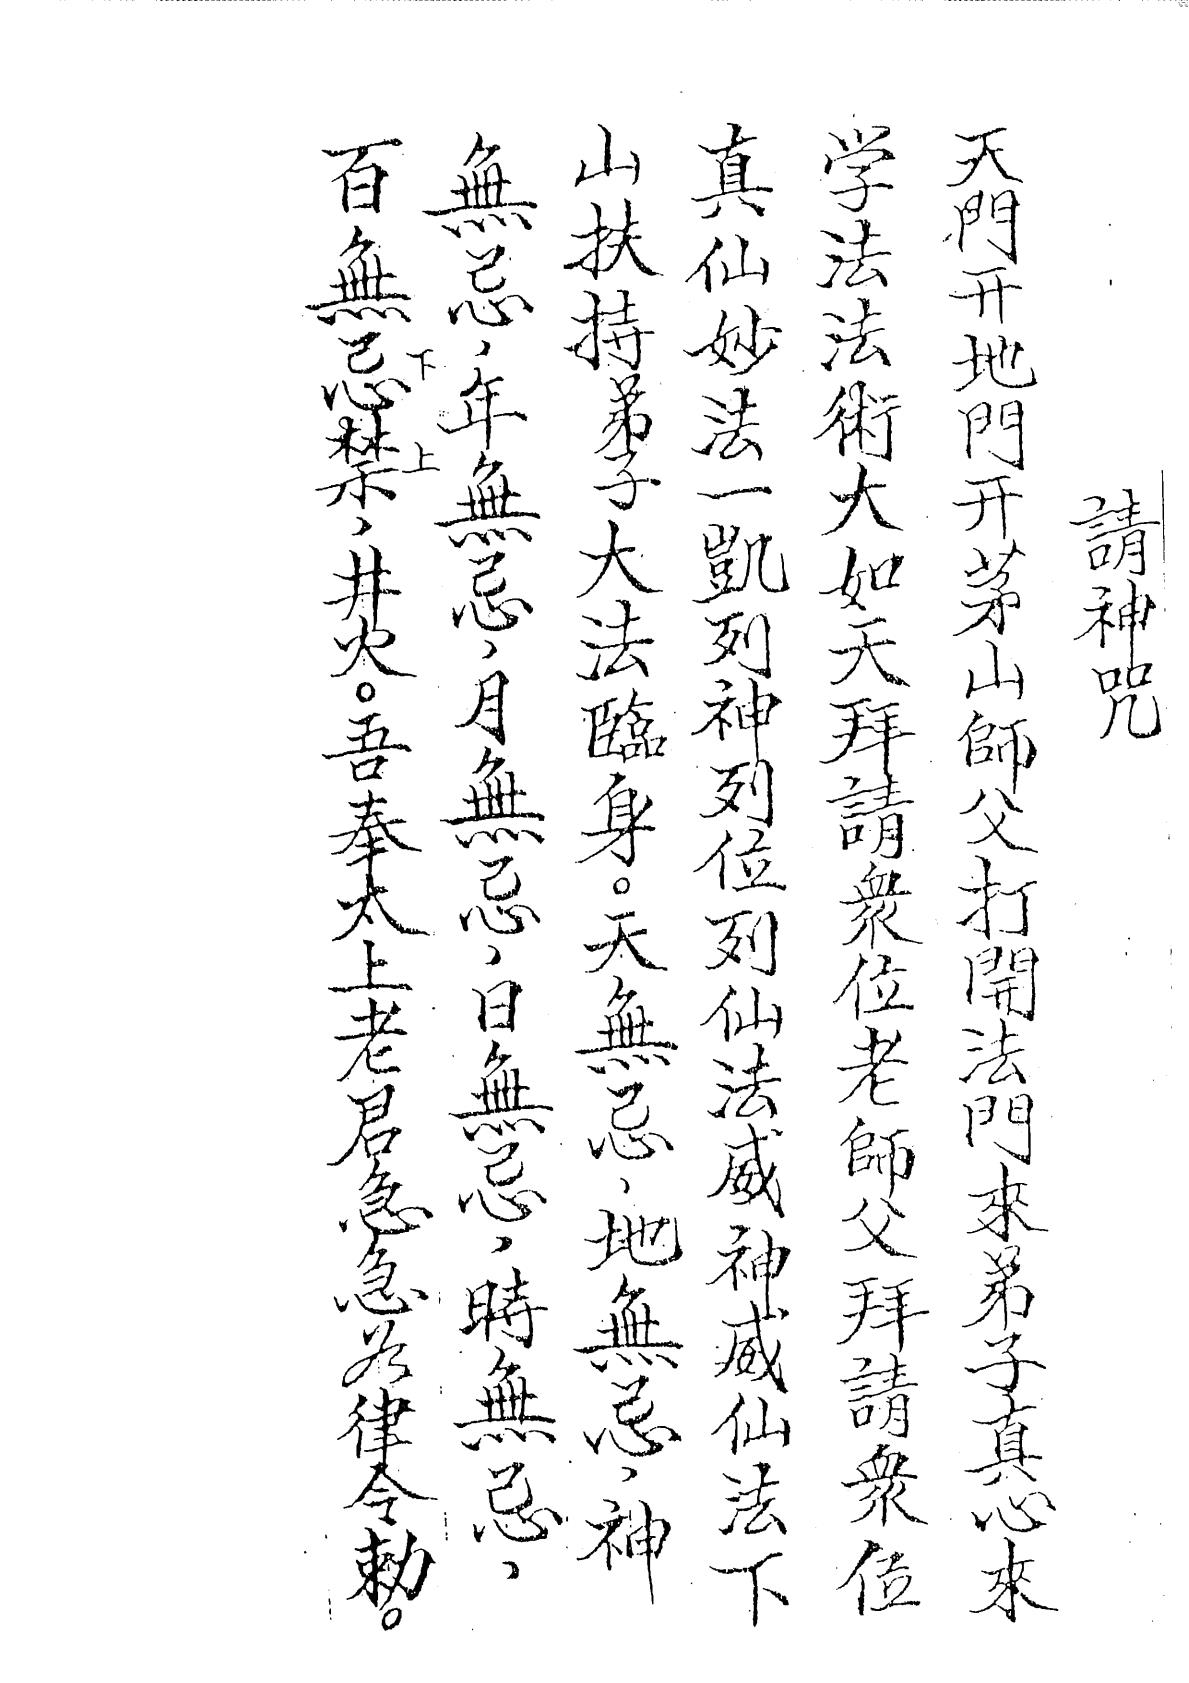 請神咒
天門开地門开茅山師父打開法門來弟子真心來
学法法術大如天拜請衆位老師父拜請衆位
真仙妙法一凱列神列位列仙法威神威仙法下
山扶持弟子大法臨身。天無忌、地無忌、神
無忌、年無忌、月無忌、日無忌、時無忌、
百無忌禁、井火。吾奉太上老君急急如律令勅。
下上